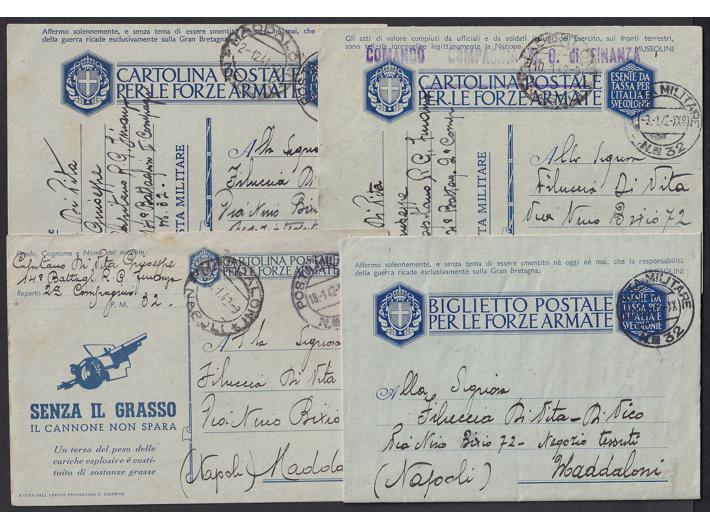 Affermo solennemente, e senza tema di essere smentito nè oggi nè mai, che
della guerra ricade esclusivamente sulla Gran Bretagna.
MADDALONI
2-12-41
CARTOLINA POSTALE
PER LE FORZE ARMATE
Di Vita
Giuseppe
14° Battaglione 2ª Compagnia
P.M. 32.
STA MILITARE
Alla Signora
Filuccia Di Vita
Via Nino Bixio
Gli atti di valore compiuti da ufficiali e da soldati del Esercito, sui fronti terrestri,
sono tali da inorgoglire legittimamente la Nazione.
MUSSOLINI
COMANDO COMPAGNIA G. di FINANZA
CARTOLINA POSTALE
PER LE FORZE ARMATE
ESENTE DA
TASSA PER
L'ITALIA E
SVE COLONIE
MILITARE
-3-1-42-XX
N. 32
Di Vita
Giuseppe
POSTA MILITARE
Alla Signora
Filuccia Di Vita
Via Nino Bixio 72
32
Grado, Cognome e Nome del mittente
Capitano Di Vita Giuseppe
14° Battagl. R. G. Finanza
Reparto 2ª Compagnia
P. M. 32.
SENZA IL GRASSO
IL CANNONE NON SPARA
Un terzo del peso delle
cariche esplosive è costi-
tuito di sostanze grasse
A CURA DELL'UFFICIO PROPAGANDA R. ESERCITO
CARTOLINA POSTALE
PER LE FORZE ARMATE
MADDALONI
POSTA MILITARE
18-1-42
N. 32
Alla Signora
Filuccia Di Vita
Via Nino Bixio
(Napoli) Maddalo
Affermo solennemente, e senza tema di essere smentito nè oggi nè mai, che la responsabilità
della guerra ricade esclusivamente sulla Gran Bretagna.
MUSSOLINI
BIGLIETTO POSTALE
PER LE FORZE ARMATE
ESENTE DA
TASSA PER
L'ITALIA E
SVE COLONIE
MILITARE
N. 32
Alla Signora
Filuccia Di Vita-Di Nico
Via Nino Bixio 72 - Negozio tessuti
(Napoli) Maddaloni